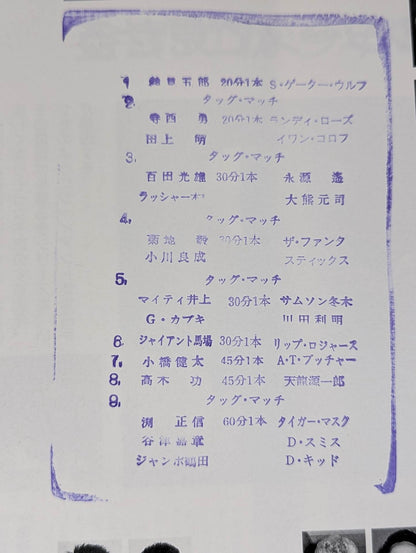 1 鶴見五郎 20分1本 S・ゲーター・ウルフ
2. タッグ・マッチ
寺西 勇 20分1本 ランディ・ローズ
田上 明 イワン・コロフ
3. タッグ・マッチ
百田光雄 30分1本 永源 遙
ラッシャー木 大熊元司
4. タッグ・マッチ
菊地 毅 30分1本 ザ・ファンタ
小川良成 スティックス
5. タッグ・マッチ
マイティ井上 30分1本 サムソン冬木
G・カブキ 川田利明
6. ジャイアント馬場 30分1本 リップ・ロジャース
7. 小橋健太 45分1本 A・T・ブッチャー
8. 高木 功 45分1本 天龍源一郎
9. タッグ・マッチ
渕 正信 60分1本 タイガー・マスク
谷津嘉章 D・スミス
ジャンボ鶴田 D・キッド